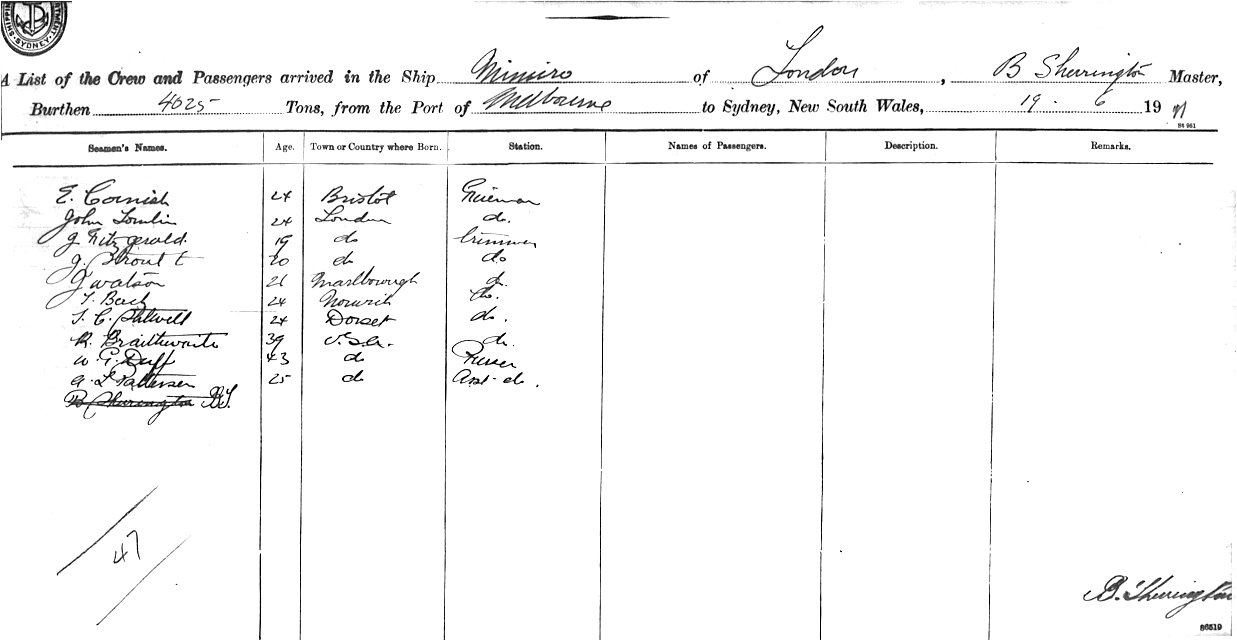 SHIPPING
SYDNEY
A List of the Crew and Passengers arrived in the Ship Mimiro of London, B Sherrington Master,
Burthen 4025 Tons, from the Port of Melbourne to Sydney, New South Wales, 19 . 6 19
St 961
Seamen's Names. Age. Town or Country where Born. Station. Names of Passengers. Description. Remarks.
E. Cornish 24 Bristol Fireman
John Tomlin 24 London do.
J. Fitzgerald. 19 do trimmer
J. 20 do do
J Watson 21 Marlborough do.
T. 24 do.
T. C. 24 Dorset do.
R. Braithwaite 39 U.S.A. do.
W. G. Duff 43 do
A. L Patterson 25 do Asst. do.
B Sherrington B.S.
47
B. Sherrington
86519